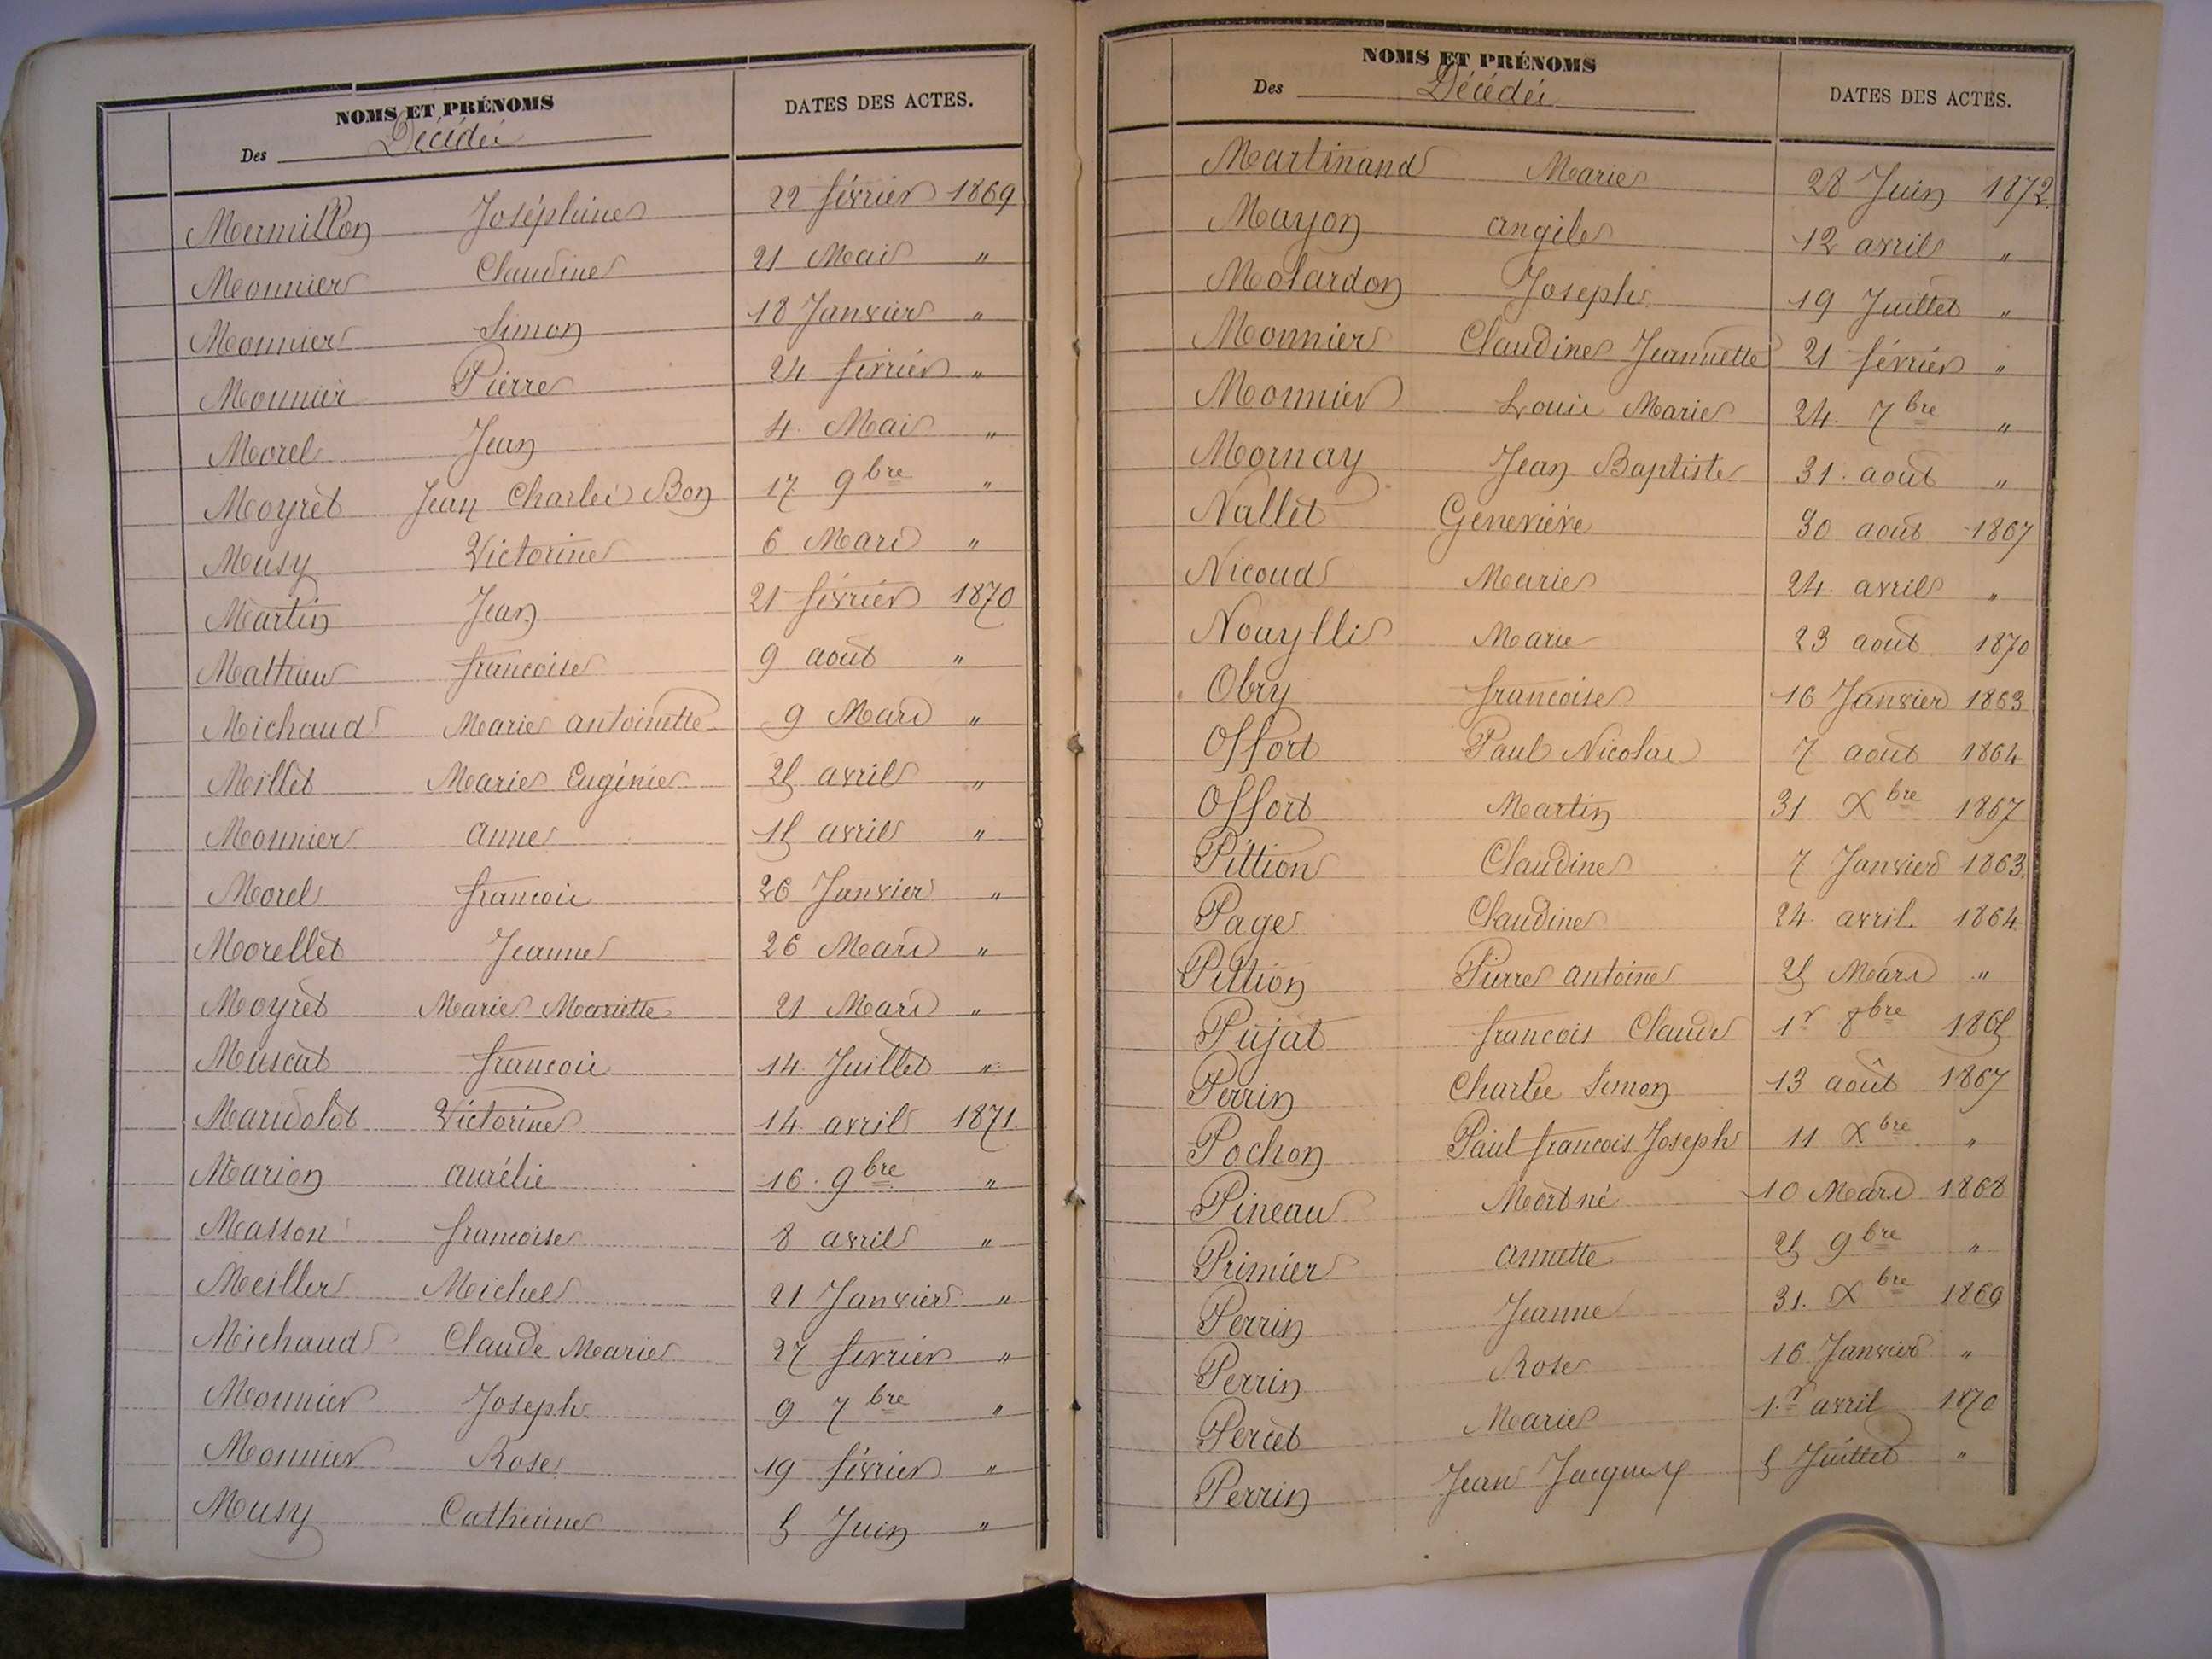 NOMS ET PRÉNOMS
Des Décédés
DATES DES ACTES.
Mermillon Joséphine 22 février 1869
Monnier Claudine 21 Mai "
Monnier Simon 18 Janvier "
Monnier Pierre 24 février "
Morel Jean 4 Mai "
Moyret Jean Charles Bon 17 9bre "
Musy Victorine 6 Mars "
Martin Jean 21 février 1870
Mathieu francoise 9 août "
Michaud Marie antoinette 9 Mars "
Millet Marie Eugénie 25 avril "
Monnier anne 15 avril "
Morel francois 26 Janvier "
Morellet Jeanne 26 Mars "
Moyret Marie Mariette 21 Mars "
Muscat francois 14 Juillet "
Victorine 14 avril 1871
Marion aurélie 16 9bre "
Masson francoise 8 avril "
Meiller Michel 21 Janvier "
Michaud Claude Marie 27 fevrier "
Monnier Joseph 9 7bre "
Monnier Rose 19 février "
Musy Catherine 5 Juin "
NOMS ET PRÉNOMS
Des Décédés
DATES DES ACTES.
Martinand Marie 28 Juin 1872
Mayon angile 12 avril "
Molardon Joseph 19 Juillet "
Monnier Claudine Jeannette 21 février "
Monnier Louis Marie 24 7bre "
Mornay Jean Baptiste 31 août "
Nallet Geneviéve 30 août 1867
Nicoud Marie 24 avril "
Nouyllis Marie 23 août 1870
Obry francoise 16 Janvier 1863
Offort Paul Nicolas 7 août 1864
Offort Martin 31 Xbre 1867
Pittion Claudine 7 Janvier 1863
Page Claudine 24 avril 1864
Pittion Pierre antoine 25 Mars "
Pujat francois Claude 1r 8bre 1865
Perrin Charles Simon 13 août 1867
Pochon Paul francois Joseph 11 Xbre "
Pineau Mort né 10 Mars 1868
Primier annette 25 9bre "
Perrin Jeanne 31 Xbre 1869
Perrin Rose 16 Janvier "
Percet Marie 1r avril 1870
Perrin Jean Jacques 5 Juillet "